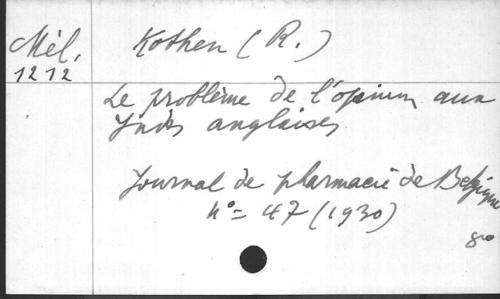 Mél. Kothen (R.)
1212
Le problème de l'opium aux
Indes anglaises
Journal de pharmacie de Belgique
n° = 47 (1930)